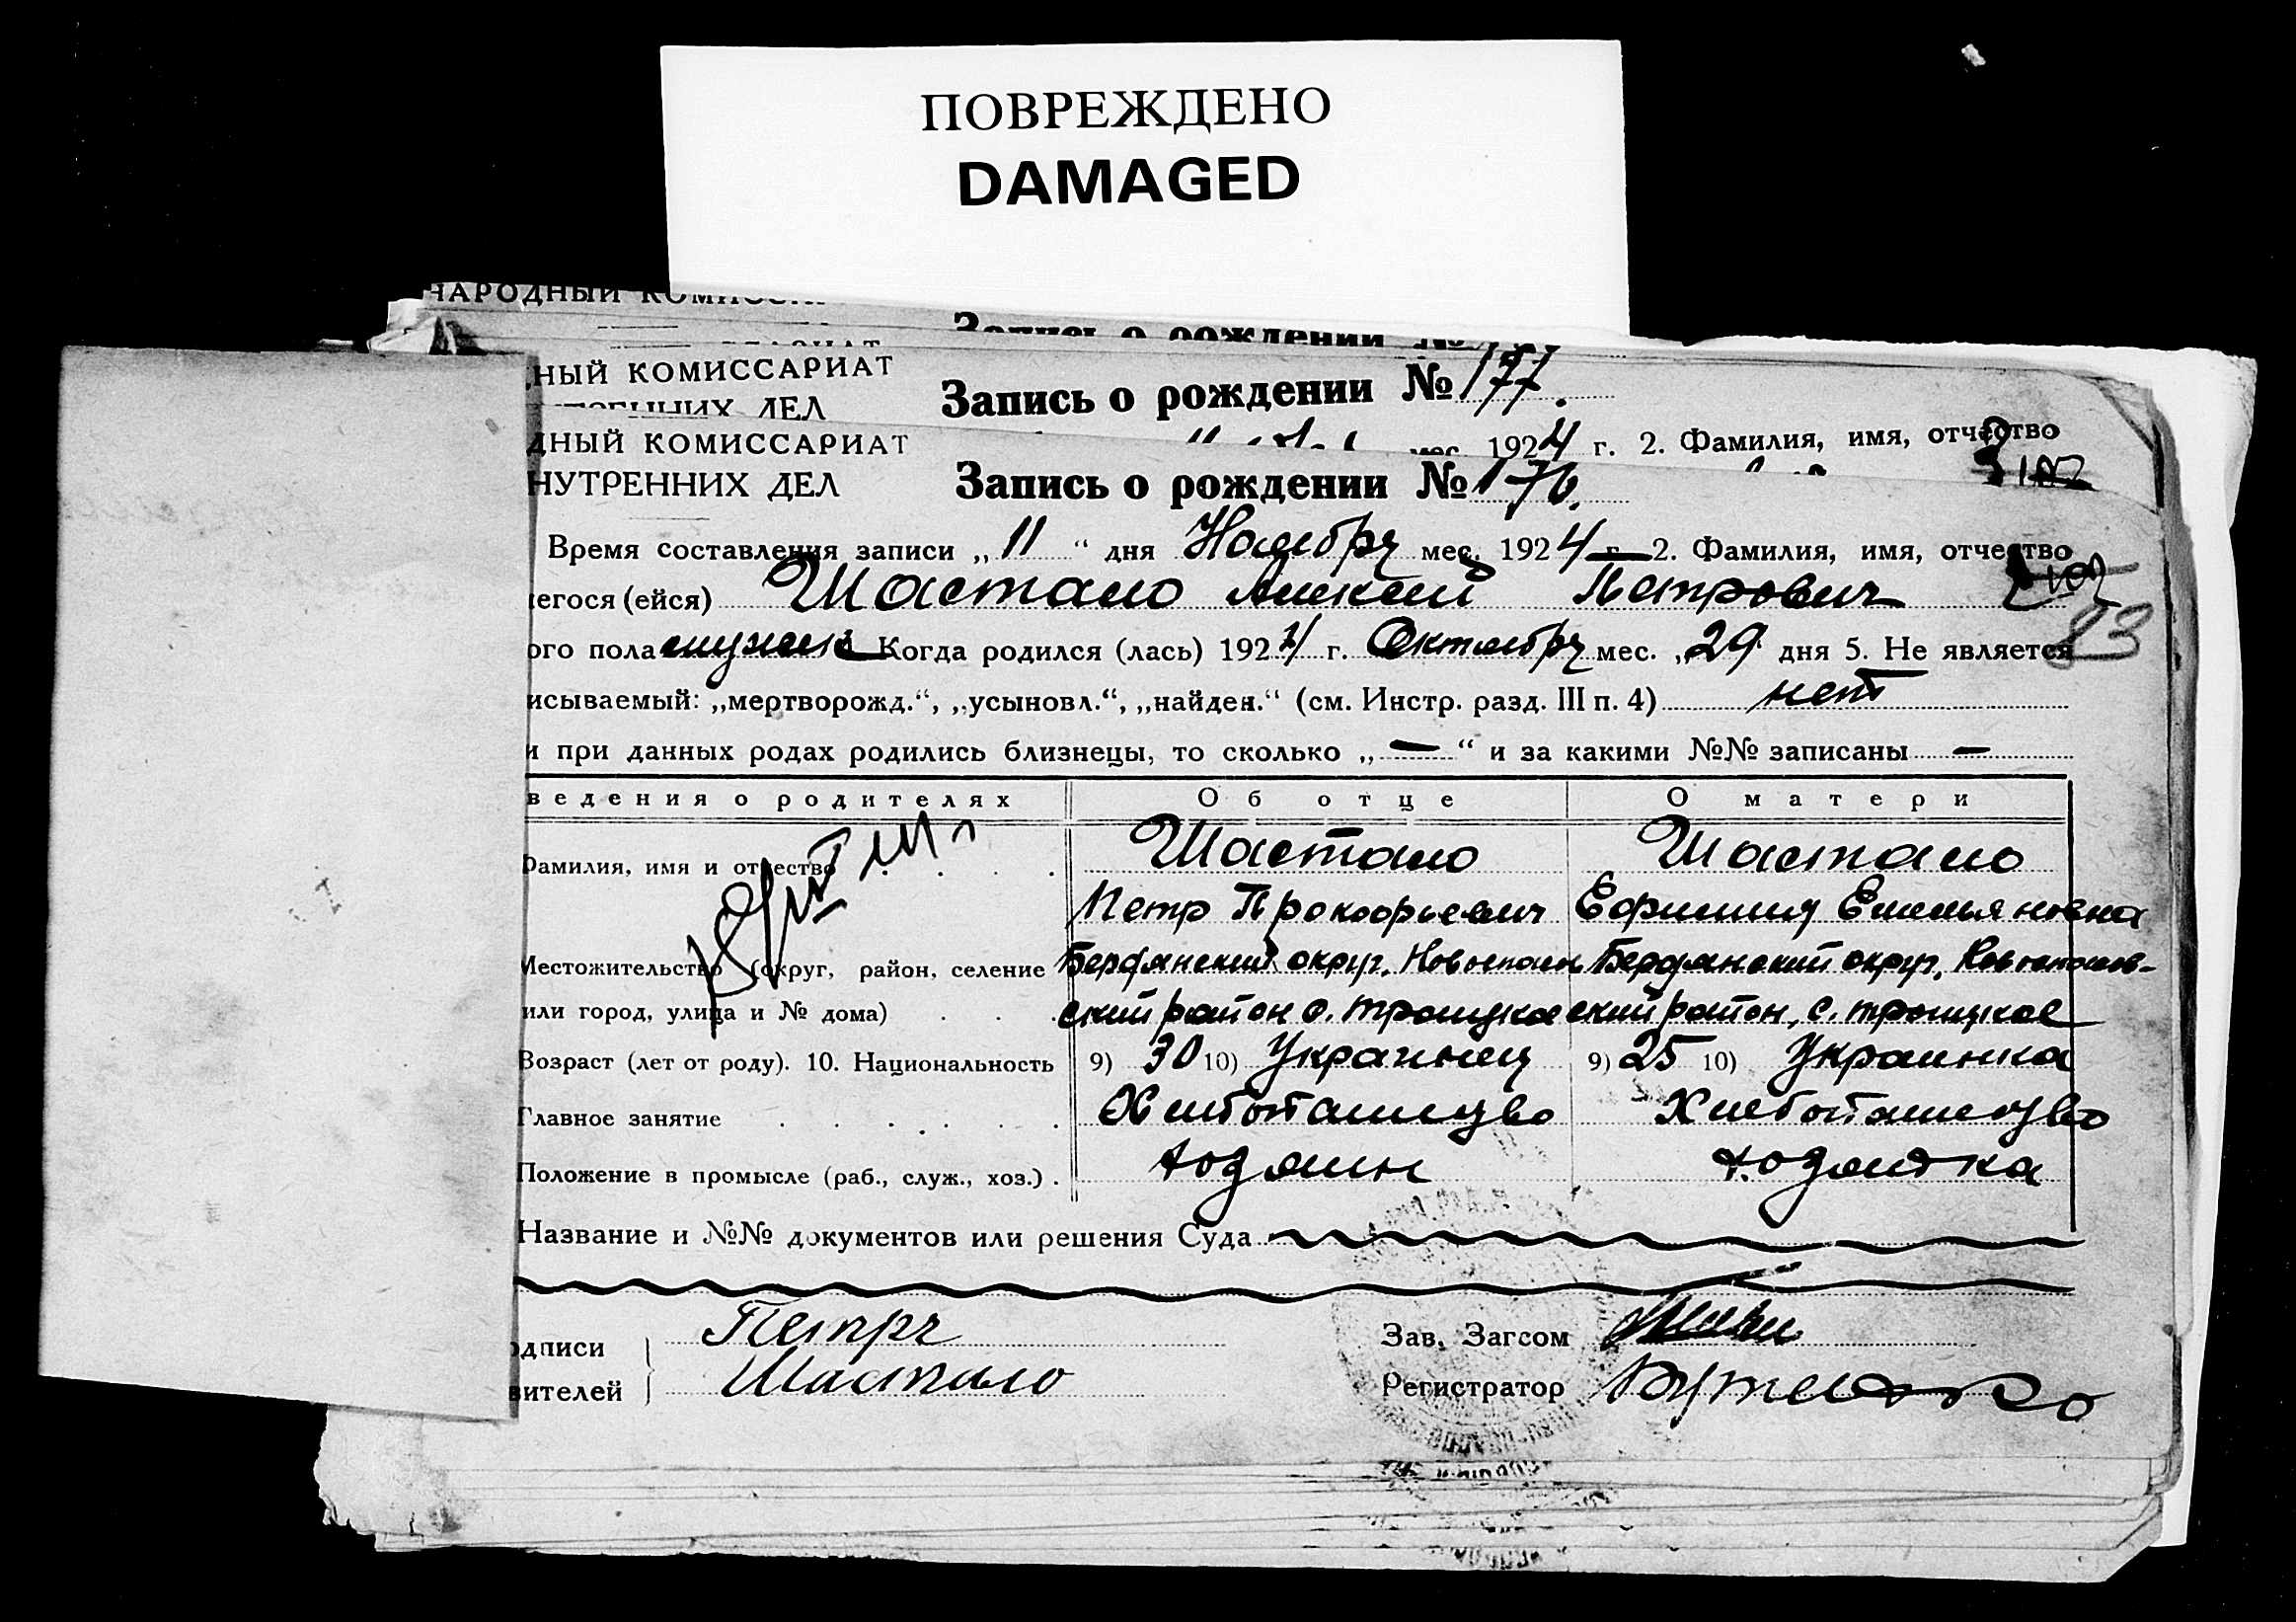 ПОВРЕЖДЕНО
DAMAGED
НАРОДНЫЙ
Запись о рождении №
НЫЙ КОМИССАРИАТ
ДЕЛ
Запись о рождении № 177.
мес. 1924 г. 2. Фамилия, имя, отчество
ДНЫЙ КОМИССАРИАТ
НУТРЕННИХ ДЕЛ
Запись о рождении № 176.
Время составления записи „ 11 “ дня Ноября мес. 1924 г. 2. Фамилия, имя, отчество
егося (ейся) Шастало Алексей Петрович
83
ого пола мужск Когда родился (лась) 1924 г. Октября мес. „29 дня 5. Не является
исываемый: „мертворожд.“, „усыновл.“, „найден.“ (см. Инстр. разд. III п. 4) нет
и при данных родах родились близнецы, то сколько „ — “ и за какими №№ записаны —
ведения о родителях Об отце О матери
Фамилия, имя и отчество Шастало Шастало
Петр Прокофьевич Емельяновна
Местожительство (округ, район, селение Бердянский округ, Бердянский округ,
или город, улица и № дома) ский район с. Троицкое ский район, с. Троицкое
Возраст (лет от роду). 10. Национальность 9) 30 10) Украинец 9) 25 10) Украинка
Главное занятие Хлебопашецво Хлебопашецво
Положение в промысле (раб., служ., хоз.) хозяин хозяйка
Название и №№ документов или решения Суда
одписи Петр
Зав. Загсом
вителей Шастало
Регистратор Бутенко